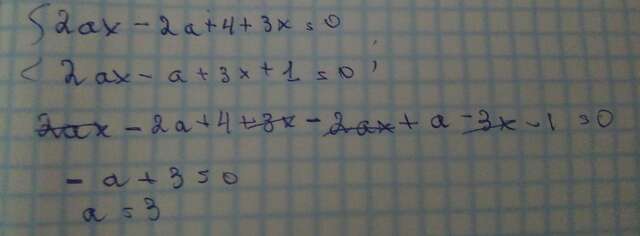 { 2ax - 2a + 4 + 3x = 0
2ax - a + 3x + 1 = 0 ;
2ax - 2a + 4 + 3x - 2ax + a - 3x - 1 = 0
- a + 3 = 0
a = 3